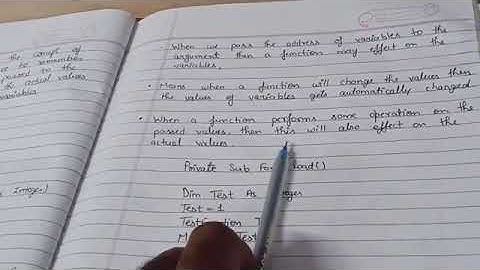 the concept of
to be remember
passed to the
the actual values
variables
Integer)
• When we pass the address of variables to the
argument than a function may effect on the
variables.
• Means when a function will change the values then
the values of variables gets automatically changed
• When a function performs some operation on the
passed values then this will also effect on the
actual values.
Private Sub Load()
Dim Test As
Test = 1